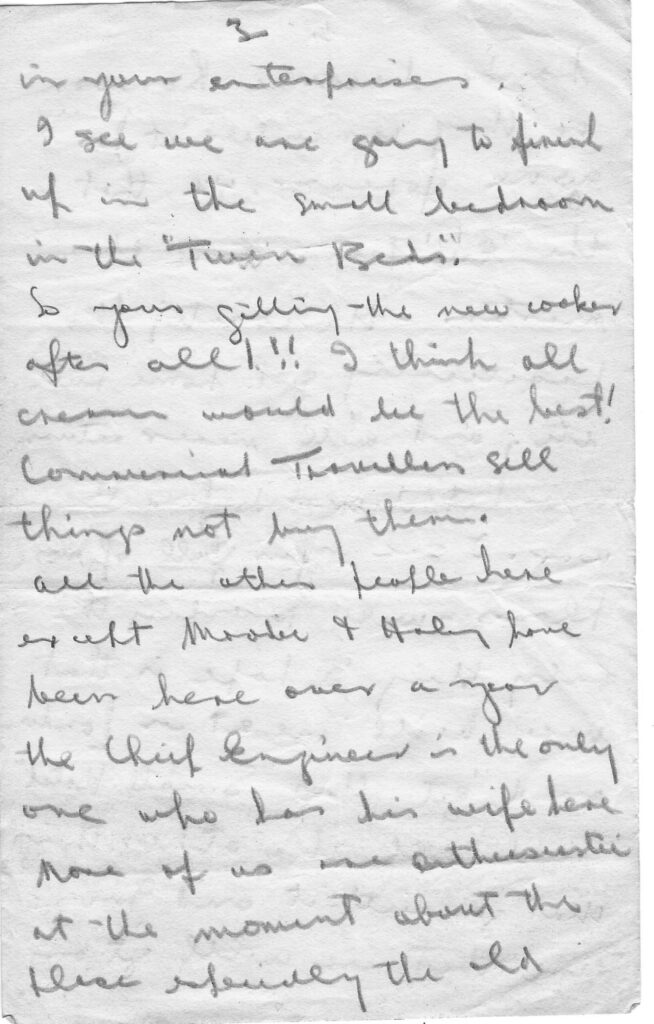 3
in your enterprises.
I see we are going to finish
up in the small bedroom
in the "Twin Beds".
So your getting the new cooker
after all!!! I think all
cream would be the best!
Commercial Travellers sell
things not buy them.
all the other people here
except Moodie & Haley have
been here over a year
the Chief Engineer is the only
one who has his wife here
None of us are enthusiastic
at the moment about the
place especially the old